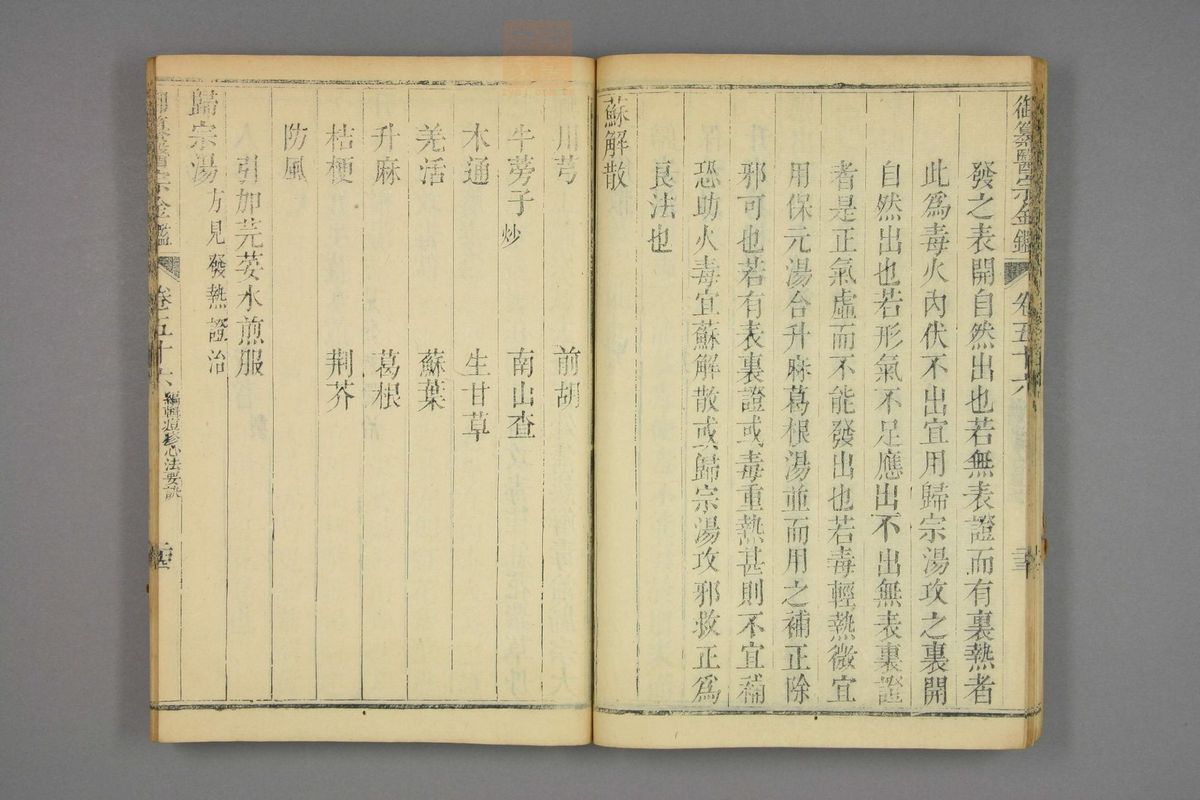 御纂醫宗金鑑 卷五十六
發之表開自然出也若無表證而有裏熱者
此為毒火內伏不出宜用歸宗湯攻之裏開
自然出也若形氣不足應出不出無表裏證
者是正氣虛而不能發出也若毒輕熱微宜
用保元湯合升麻葛根湯並而用之補正除
邪可也若有表裏證或毒重熱甚則不宜補
恐助火毒宜蘇解散或歸宗湯攻邪救正為
良法也
蘇解散
川芎 前胡
牛蒡子炒 南山查
木通 生甘草
羌活 蘇葉
升麻 葛根
桔梗 荆芥
防風
引加芫荽水煎服
歸宗湯 方見發熱證治
御纂醫宗金鑑 卷五十六 編輯痘疹心法要訣